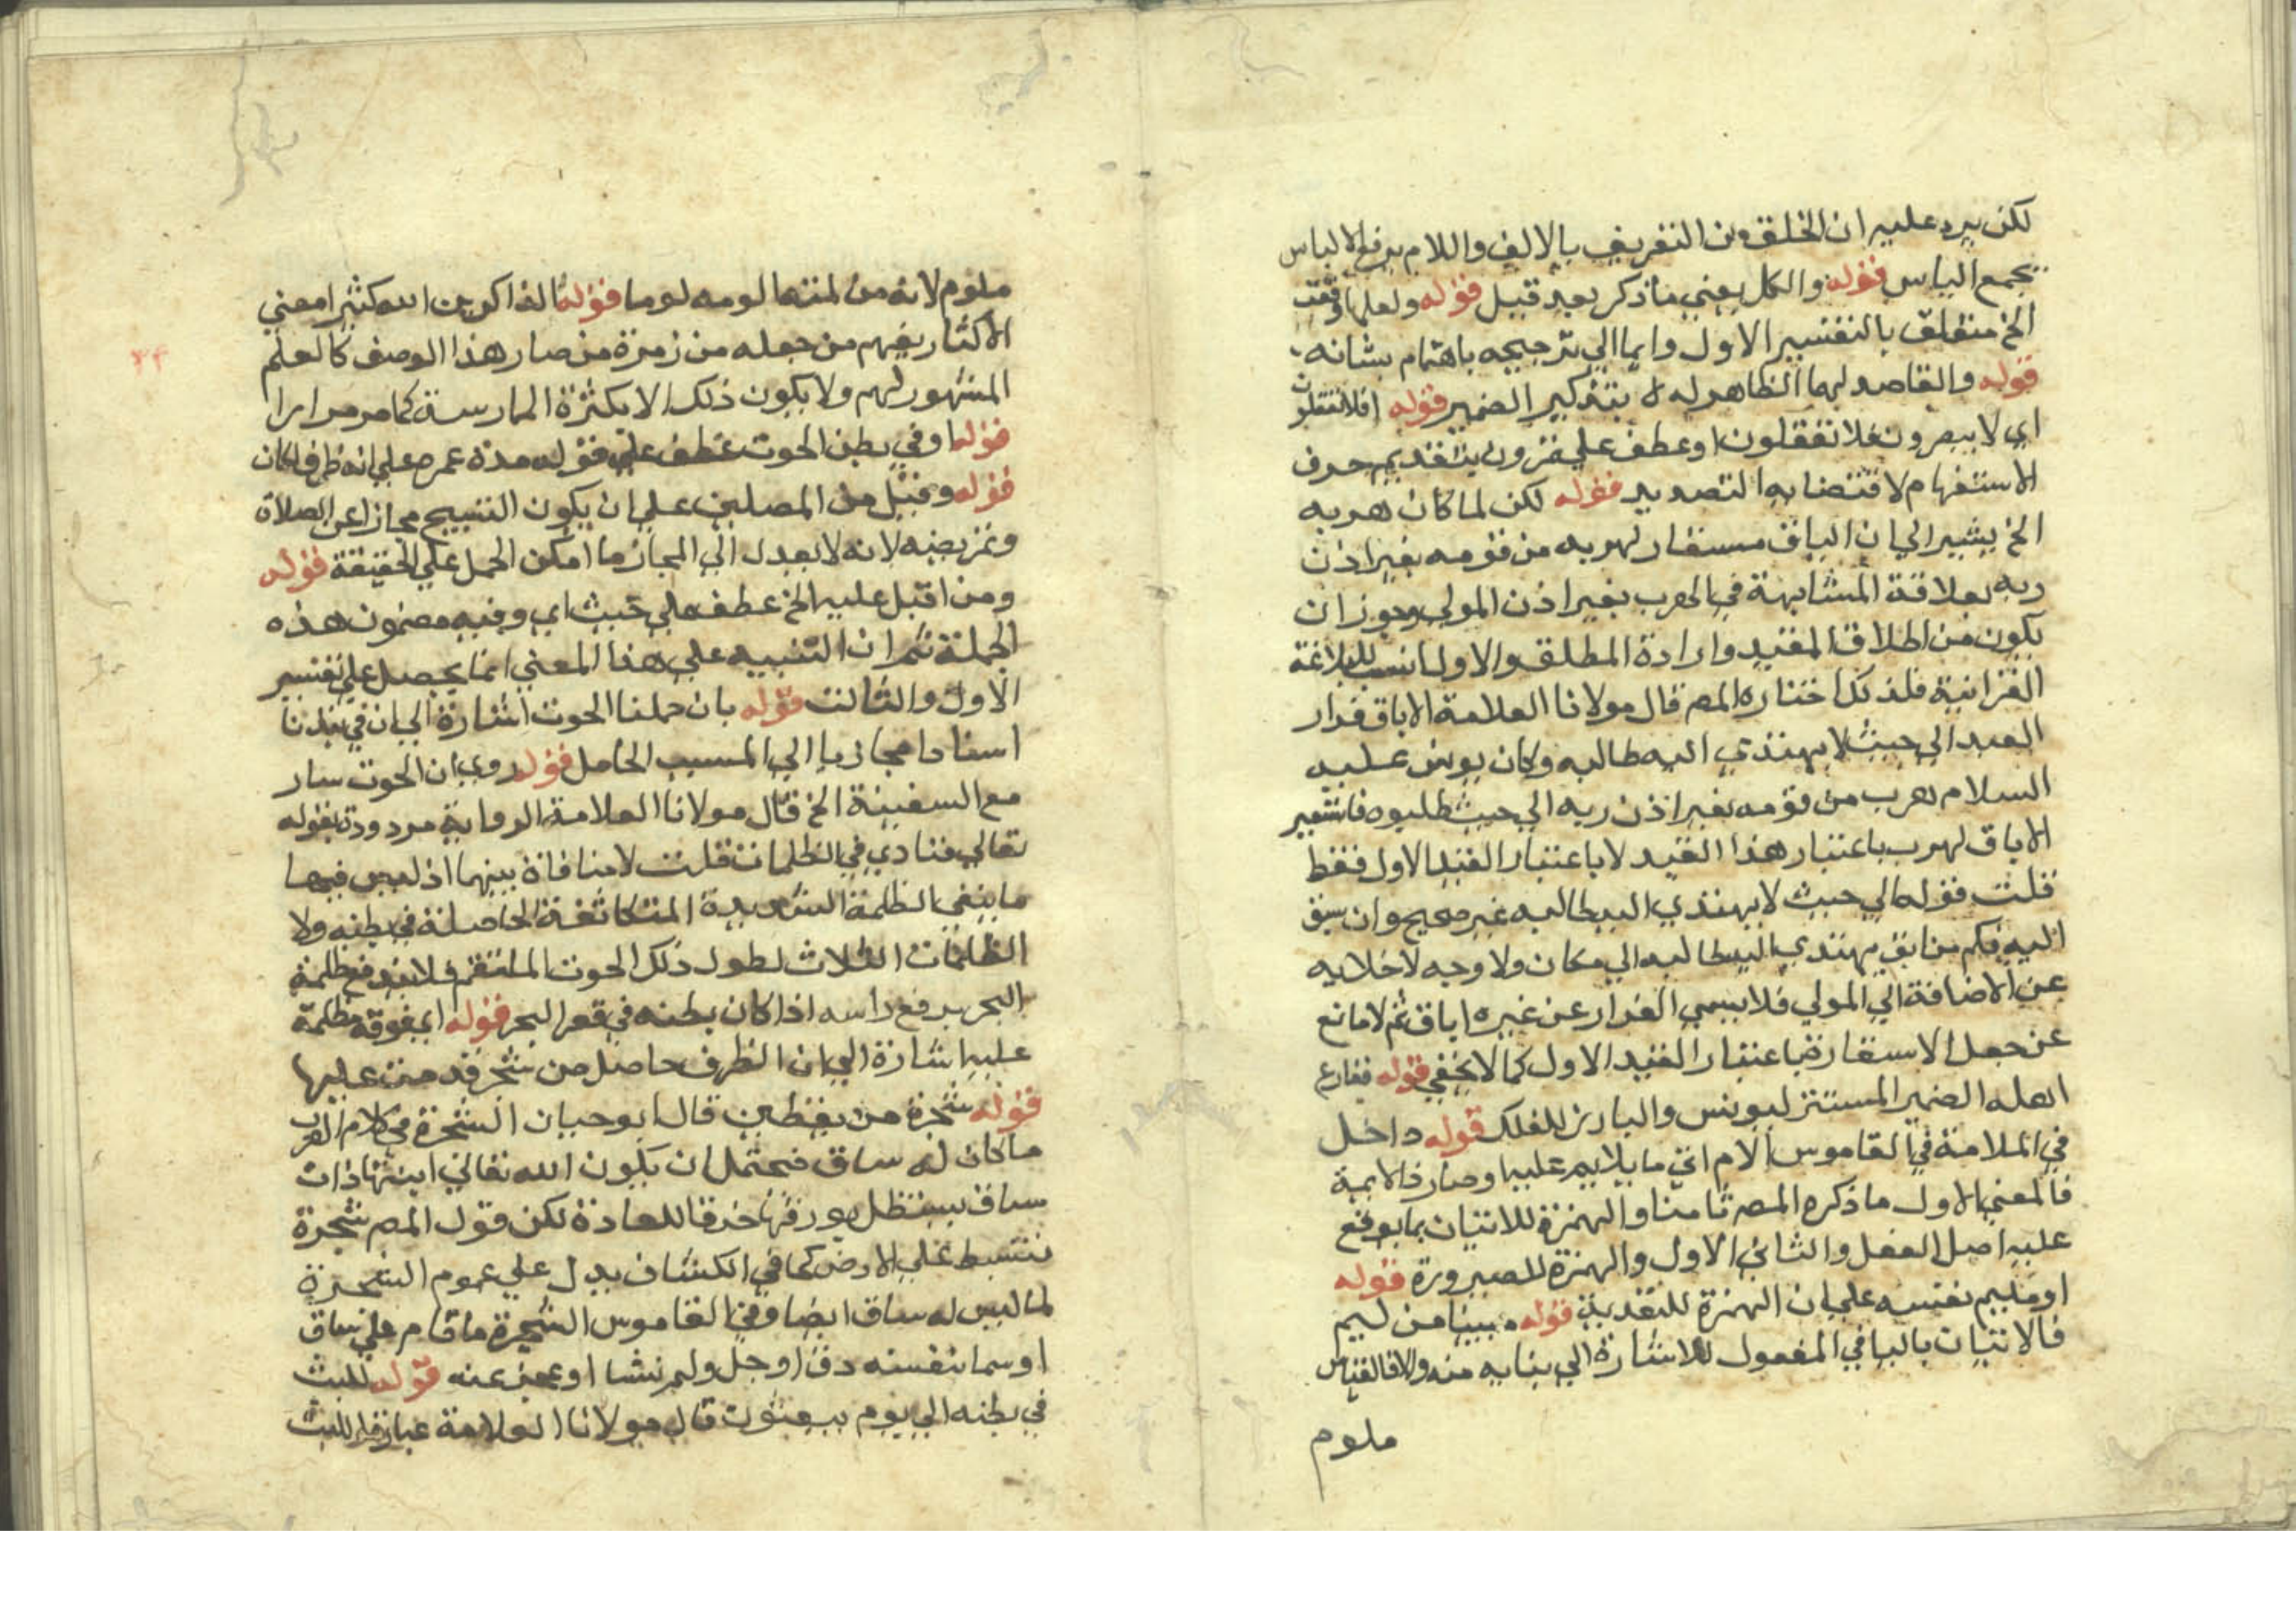 لكن يرد عليه ان الخلق من التعريف بالالف واللام يدفع الالباس
بجمع الياس قوله والكل يعني ما ذكر بعد قبل قوله ولعلها وقعت
الخ متعلق بالتفسير الاول وايما الي ترجيحه باهتمام بشانه
قوله والقاصد لهما الظاهر له بتذكير الضمير قوله افلا تعقلون
اي لا يبصرون فلا تعقلون او عطف علي تمرون بتقديم حرف
الاستفهام لاقتضايه التصدير قوله لكن لما كان هربه
الخ يشير الي ان اباق مستعار لهربه من قومه بغير اذن
ربه بعلاقة المشابهة في الهرب بغير اذن المولي ويجوز ان
يكون من اطلاق المقيد وارادة المطلق والاول انسب للبلاغة
القرانية فلذلك اختاره المص قال مولانا العلامة الاباق فرار
العبد الي حيث لا يهتدي اليه طالبه وكان يونس عليه
السلام هرب من قومه بغير اذن ربه الي حيث طلبوه فاستعير
الاباق لهرب باعتبار هذا القيد لا باعتبار القيد الاول فقط
قلت قوله الي حيث لا يهتدي اليه طالبه غير صحيح وان سبق
اليه فكم من ابق مهتدي اليه طالبه الي مكان ولا وجه لاخلايه
عن الاضافة الي المولي فلا يسمي الفرار عن غيره اباق ثم لا مانع
عن جعل الاستعارة باعتبار القيد الاول كما لا يخفي قوله فقارع
اهله الضمير المستتر ليونس والبارز للفلك قوله داخل
في الملامة في القاموس الام اتي ما يلام عليه او صار ذا لايمة
فالمعني الاول ما ذكره المص ثامنا والهمزة للاتيان بما يوقع
عليه اصل الفعل والثاني الاول والهمزة للصيرورة قوله
او مليم نفسه علي ان الهمزة للتعدية قوله مبنيا من ليم
فالاتيان باليا في المفعول للاشارة الي بنايه منه والا فالقياس
ملوم
ملوم لانه من لمته الومه لوما قوله الذاكرين الله كثيرا معني
الاكثار يفهم من جعله من زمرة من صار هذا الوصف كالعلم
المشهور لهم ولا يكون ذلك الا بكثرة الممارسة كما مر مرارا
قوله او في بطن الحوت عطف علي قوله مدة عمره علي انه ظرف مكان
قوله وقيل من المصلين علي ان يكون التسبيح مجازا عن الصلاة
وتمريضه لانه لا يعدل الي المجاز ما امكن الحمل علي الحقيقة قوله
ومن اقبل عليه الخ عطف علي حيث اي وفيه مضمون هذه
الجملة ثم ان التنبيه علي هذا المعني انما يحصل علي تفسير
الاول والثالث قوله بان حملنا الحوت اشارة الي ان في نبذنا
اسنادا مجازيا الي المسبب الحامل قوله روي ان الحوت سار
مع السفينة الخ قال مولانا العلامة الرواية مردودة بقوله
تعالي فنادي في الظلمات قلت لا منافاة بينهما اذ ليس فيها
ما ينفي الظلمة الشديدة المتكاثفة الحاصلة في بطنه ولا
الظلمات الثلاث لطول ذلك الحوت الملتقم فلا يندفع ظلمة
البحر برفع راسه اذا كان بطنه في قعر البحر قوله اي فوقه مظلة
عليه اشارة الي ان الظرف حاصل من شجر قدمت عليها
قوله شجرة من يقطين قال ابو حيان الشجرة في كلام العرب
ما كان له ساق فيحتمل ان يكون الله تعالي انبتها ذات
ساق يستظل بورقها خرقا للعادة لكن قول المص شجرة
تنبسط علي الارض كما في الكشاف يدل علي عموم الشجرة
لما ليس له ساق ايضا وفي القاموس الشجرة ما قام علي ساق
او سما بنفسه دق او جل ولم نشا او عجز عنه قوله للبث
في بطنه الي يوم يبعثون قال مولانا العلامة عبارة للبث